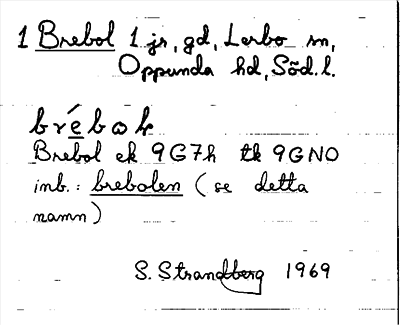 1 Brebol 1 jr, gd, Lerbo sn,
Oppunda hd, Söd. l.
Brebol ek 9G7h tk 9GNO
inb.: brebolen (se detta
namn)
S. Strandberg 1969